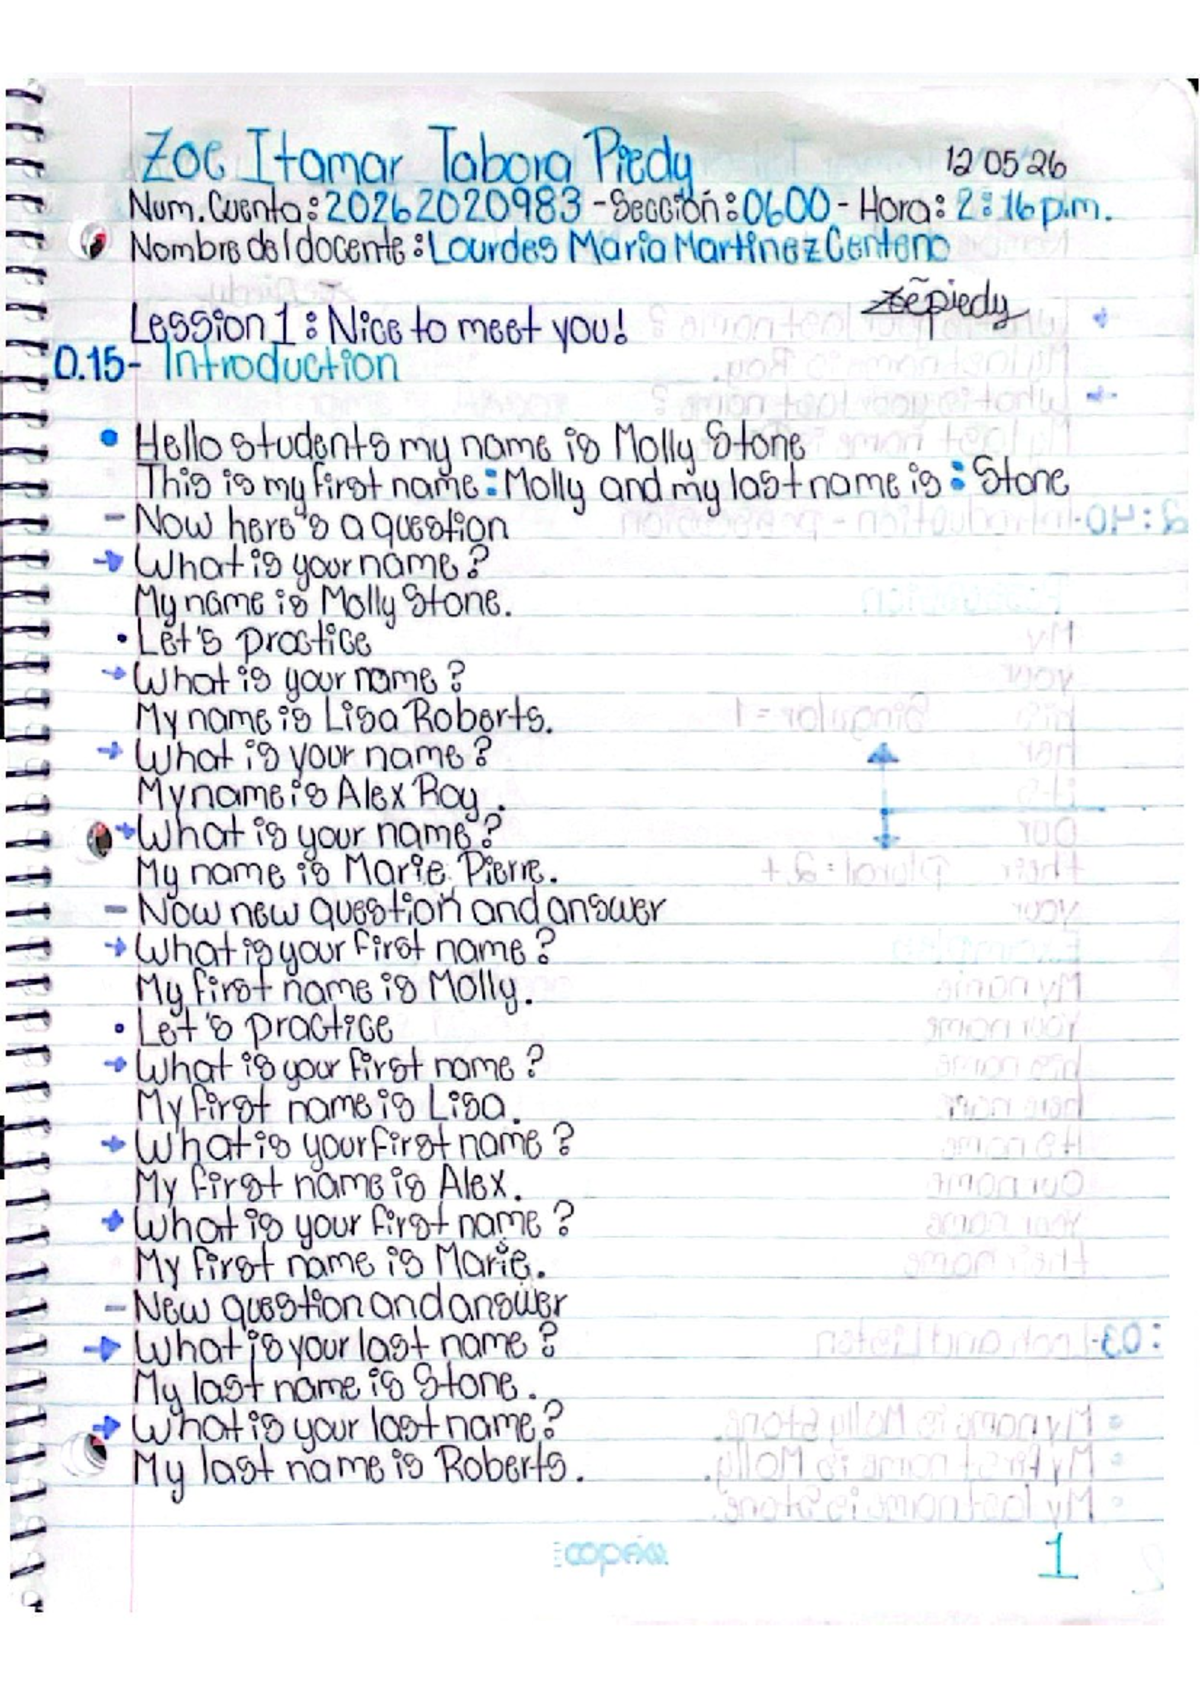 Zoe Itamar Tabora Piedy 12 05 26
Num. Cuenta: 20262020983 - Sección: 0600 - Hora: 2:16 p.m.
Nombre del docente: Lourdes Maria Martinez Centeno
Zoë piedy
Lession 1: Nice to meet you!
0.15- Introduction
• Hello students my name is Molly Stone
This is my first name: Molly and my last name is: Stone
- Now here's a question
→ What is your name?
My name is Molly Stone.
• Let's practice
→ What is your name?
My name is Lisa Roberts.
→ What is your name?
My name is Alex Ray.
→ What is your name?
My name is Marie Pierre.
- Now new question and answer
→ What is your first name?
My first name is Molly.
• Let's practice
→ What is your first name?
My first name is Lisa.
→ What is your first name?
My first name is Alex.
→ What is your first name?
My first name is Marie.
- New question and answer
→ What is your last name?
My last name is Stone.
→ What is your last name?
My last name is Roberts.
copán
1